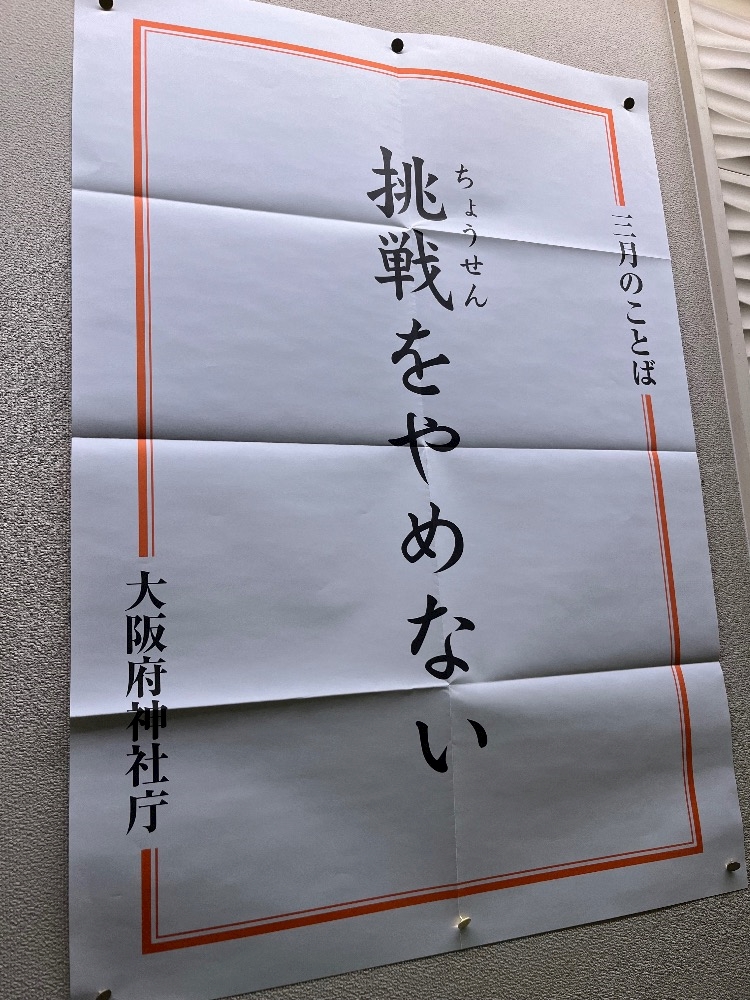 三月のことば
挑戦をやめない
ちょうせん
大阪府神社庁